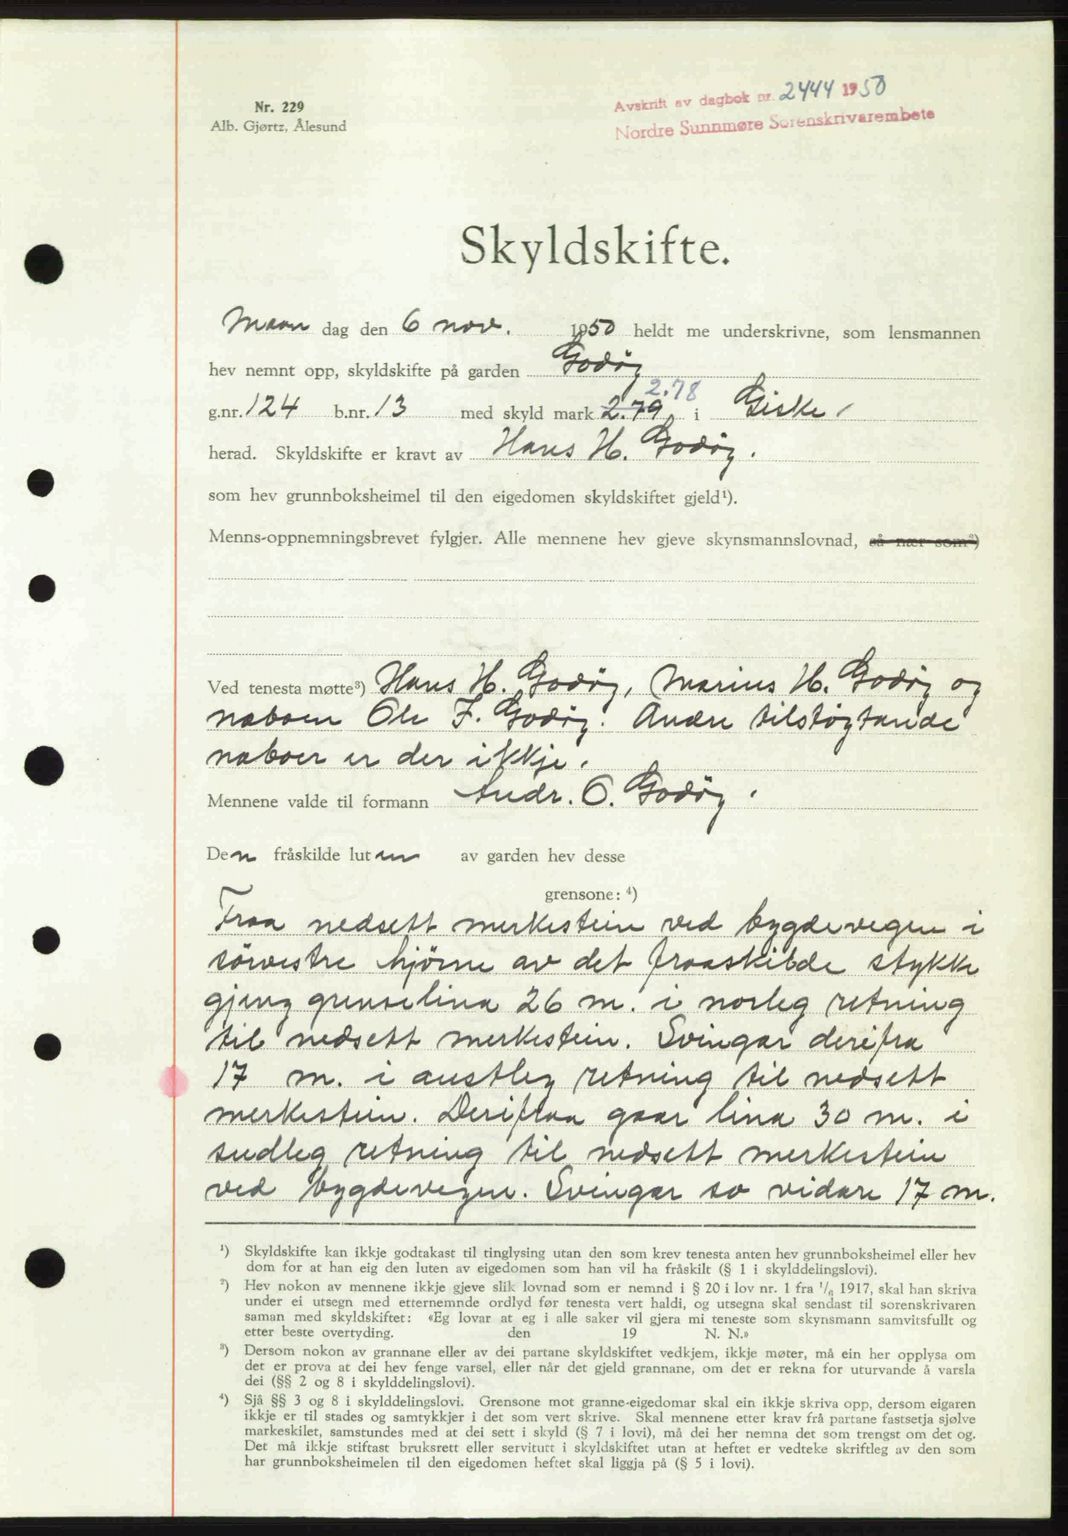 Nr. 229
Alb. Gjørtz, Ålesund
Avskrift av dagbok nr. 2444 1950
Nordre Sunnmøre Sorenskrivarembete
Skyldskifte.
Maan dag den 6 nov. 1950 heldt me underskrivne, som lensmannen
hev nemnt opp, skyldskifte på garden Godøy
2.78
g.nr. 124 b.nr. 13 med skyld mark 2.79 i Giske
herad. Skyldskifte er kravt av Hans H. Godøy.
som hev grunnboksheimel til den eigedomen skyldskiftet gjeld¹).
Menns-oppnemningsbrevet fylgjer. Alle mennene hev gjeve skynsmannslovnad, så nær som²)
Ved tenesta møtte³) Hans H. Godøy, Marius H. Godøy og
naboen Ole F. Godøy. Andre tilstøytande
naboer er der ikkje.
Mennene valde til formann Andr. O. Godøy.
Den fråskilde luten av garden hev desse
grensone: ⁴)
Fraa nedsett merkestein ved bygdevegen i
sörvestre hjörne av det fraaskilde stykke
gjeng grenselina 26 m. i norleg retning
til nedsett merkestein. Svingar derifra
17 m. i austleg retning til nedsett
merkestein. Derifraa gaar lina 30 m. i
sudleg retning til nedsett merkestein
ved bygdevegen. Svingar so vidare 17 m.
¹) Skyldskifte kan ikkje godtakast til tinglysing utan den som krev tenesta anten hev grunnboksheimel eller hev
dom for at han eig den luten av eigedomen som han vil ha fråskilt (§ 1 i skylddelingslovi).
²) Hev nokon av mennene ikkje gjeve slik lovnad som er nemnd i § 20 i lov nr. 1 fra 1/6 1917, skal han skriva
under ei utsegn med etternemnde ordlyd før tenesta vert haldi, og utsegna skal sendast til sorenskrivaren
saman med skyldskiftet: «Eg lovar at eg i alle saker vil gjera mi teneste som skynsmann samvitsfullt og
etter beste overtyding. den 19 N. N.»
³) Dersom nokon av grannane eller av dei partane skyldskiftet vedkjem, ikkje møter, må ein her opplysa om
det er prova at dei hev fenge varsel, eller når det gjeld grannane, om det er rekna for uturvande å varsla
dei (§§ 2 og 8 i skylddelingslovi).
⁴) Sjå §§ 3 og 8 i skylddelingslovi. Grensone mot granne-eigedomar skal ein ikkje skriva opp, dersom eigaren
ikkje er til stades og samtykkjer i det som vert skrive. Skal mennene etter krav frå partane fastsetja sjølve
markeskilet, samstundes med at dei sett i skyld (§ 7 i lovi), må dei her nemna det som trengst om det og.
Det må ikkje stiftast bruksrett eller servitutt i skyldskiftet utan at heftet er vedteke skriftleg av den som
har grunnboksheimelen til den eigedomen heftet skal liggja på (§ 5 i lovi).